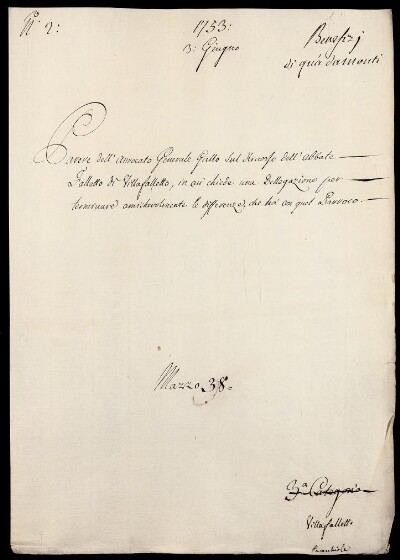 N.° 2:
1753:
3: Giugno
Benefizj
di quà da monti
Parere dell'Avvocato Generale Gallo sul Ricorso dell'abbate
Falletto di Villafalletto, in cui chiede una Dellegazione per
terminare amichevolmente le differenze, che ha con quel Parroco.
Mazzo 38=
3.a Categoria
Villafalletto